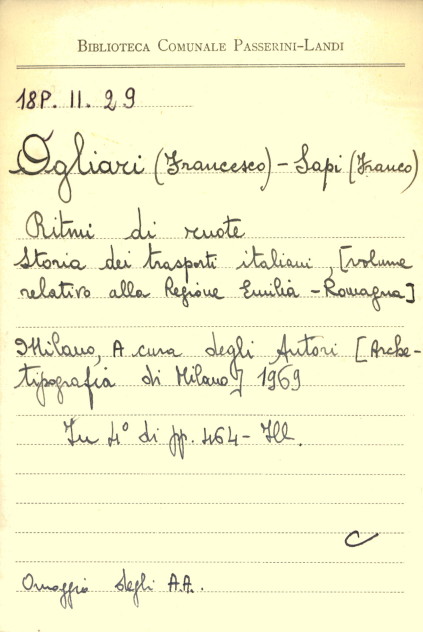 BIBLIOTECA COMUNALE PASSERINI-LANDI
18P. II. 29
Ogliari (Francesco) - Sapi (Franco)
Ritmi di ruote
Storia dei trasporti italiani, [volume
relativo alla Regione Emilia - Romagna]
Milano, A cura degli Autori [Arche-
tipografia di Milano] 1969
In 4° di pp. 464 - Ill.
C
Omaggio degli A.A..